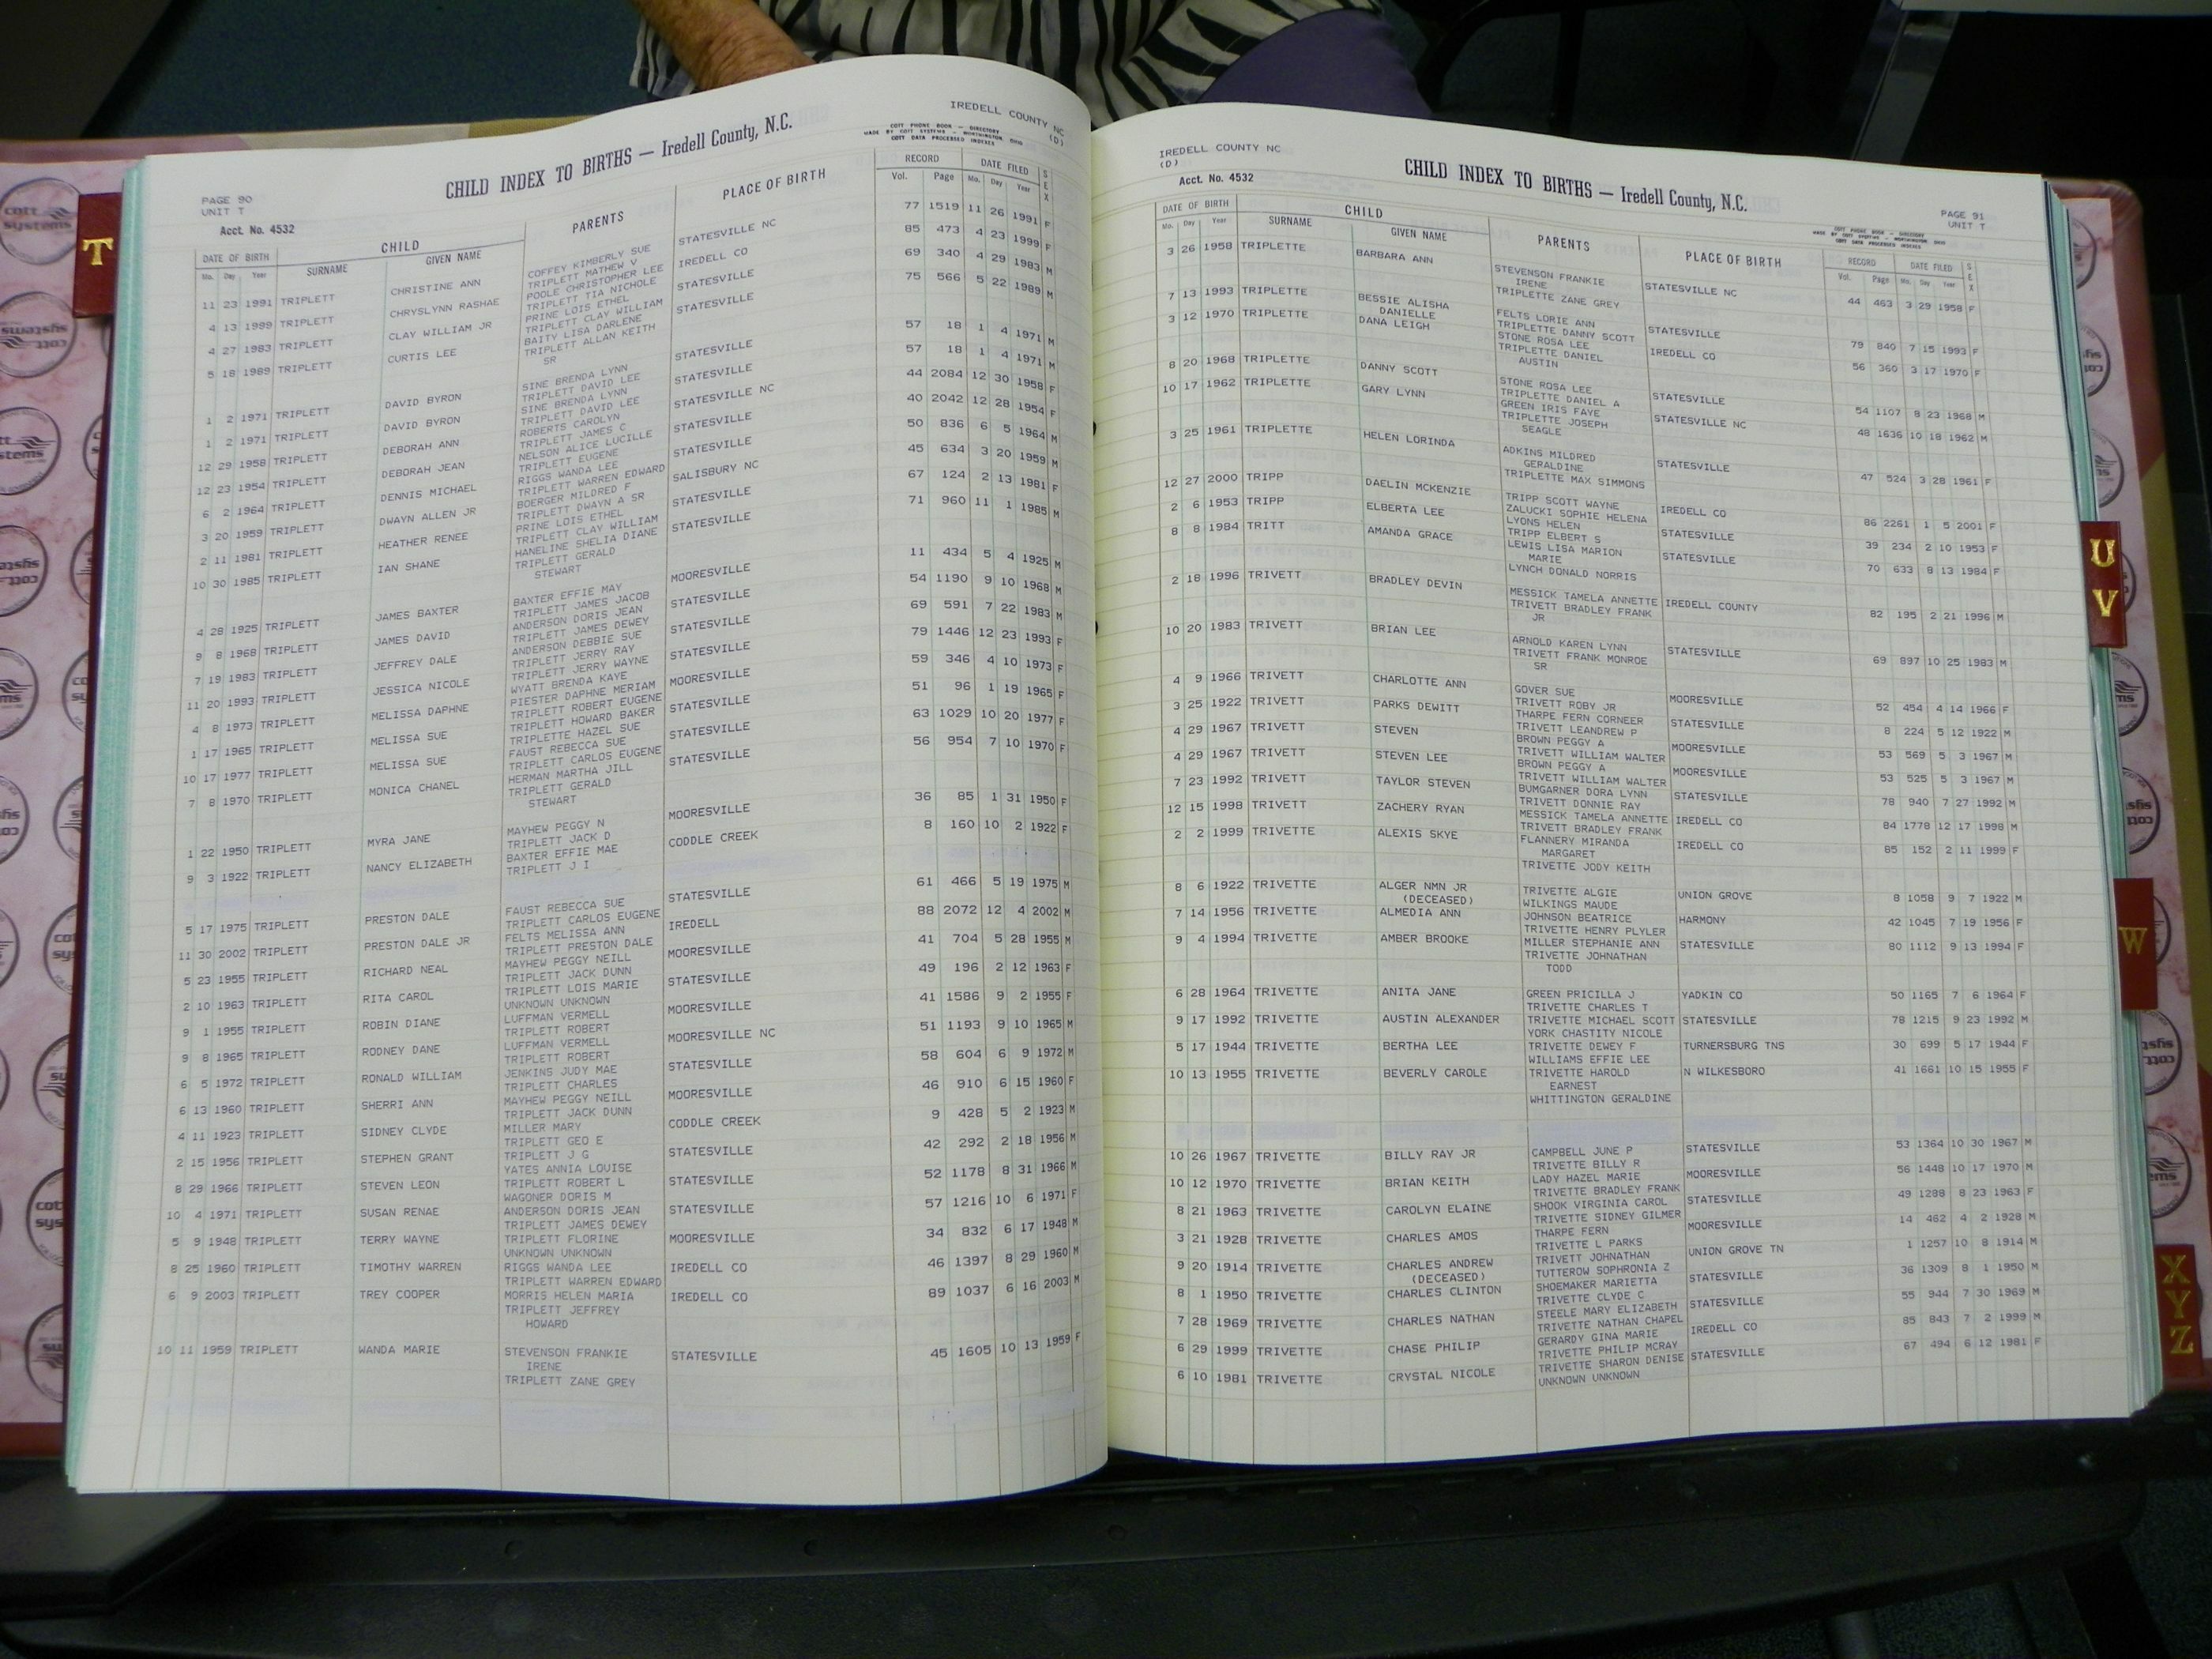 IREDELL COUNTY NC
(D)
COTT PHONE BOOK — DIRECTORY
MADE BY COTT SYSTEMS — WORTHINGTON, OHIO
COTT DATA PROCESSED INDEXES
CHILD INDEX TO BIRTHS — Iredell County, N.C.
PAGE 90
UNIT T
Acct. No. 4532
DATE OF BIRTH CHILD PARENTS PLACE OF BIRTH RECORD DATE FILED SEX
Mo. Day Year SURNAME GIVEN NAME Vol. Page Mo. Day Year
11 23 1991 TRIPLETT CHRISTINE ANN COFFEY KIMBERLY SUE STATESVILLE NC 77 1519 11 26 1991 F
TRIPLETT MATHEW V
4 13 1999 TRIPLETT CHRYSLYNN RASHAE POOLE CHRISTOPHER LEE IREDELL CO 85 473 4 23 1999 F
TRIPLETT TIA NICHOLE
4 27 1983 TRIPLETT CLAY WILLIAM JR PRINE LOIS ETHEL STATESVILLE 69 340 4 29 1983 M
TRIPLETT CLAY WILLIAM
5 18 1989 TRIPLETT CURTIS LEE BAITY LISA DARLENE STATESVILLE 75 566 5 22 1989 M
TRIPLETT ALLAN KEITH
SR
1 2 1971 TRIPLETT DAVID BYRON SINE BRENDA LYNN STATESVILLE 57 18 1 4 1971 M
TRIPLETT DAVID LEE
1 2 1971 TRIPLETT DAVID BYRON SINE BRENDA LYNN STATESVILLE 57 18 1 4 1971 M
TRIPLETT DAVID LEE
12 29 1958 TRIPLETT DEBORAH ANN ROBERTS CAROLYN STATESVILLE NC 44 2084 12 30 1958 F
TRIPLETT JAMES C
12 23 1954 TRIPLETT DEBORAH JEAN NELSON ALICE LUCILLE STATESVILLE 40 2042 12 28 1954 F
TRIPLETT EUGENE
6 2 1964 TRIPLETT DENNIS MICHAEL RIGGS WANDA LEE STATESVILLE 50 836 6 5 1964 M
TRIPLETT WARREN EDWARD
3 20 1959 TRIPLETT DWAYN ALLEN JR BOERGER MILDRED F SALISBURY NC 45 634 3 20 1959 M
TRIPLETT DWAYN A SR
2 11 1981 TRIPLETT HEATHER RENEE PRINE LOIS ETHEL STATESVILLE 67 124 2 13 1981 F
TRIPLETT CLAY WILLIAM
10 30 1985 TRIPLETT IAN SHANE HANELINE SHELIA DIANE STATESVILLE 71 960 11 1 1985 M
TRIPLETT GERALD
STEWART
4 28 1925 TRIPLETT JAMES BAXTER BAXTER EFFIE MAY MOORESVILLE 11 434 5 4 1925 M
TRIPLETT JAMES JACOB
9 8 1968 TRIPLETT JAMES DAVID ANDERSON DORIS JEAN STATESVILLE 54 1190 9 10 1968 M
TRIPLETT JAMES DEWEY
7 19 1983 TRIPLETT JEFFREY DALE ANDERSON DEBBIE SUE STATESVILLE 69 591 7 22 1983 M
TRIPLETT JERRY RAY
11 20 1993 TRIPLETT JESSICA NICOLE TRIPLETT JERRY WAYNE STATESVILLE 79 1446 12 23 1993 F
WYATT BRENDA KAYE
4 8 1973 TRIPLETT MELISSA DAPHNE PIESTER DAPHNE MERIAM MOORESVILLE 59 346 4 10 1973 F
TRIPLETT ROBERT EUGENE
1 17 1965 TRIPLETT MELISSA SUE TRIPLETT HOWARD BAKER STATESVILLE 51 96 1 19 1965 F
TRIPLETTE HAZEL SUE
10 17 1977 TRIPLETT MELISSA SUE FAUST REBECCA SUE STATESVILLE 63 1029 10 20 1977 F
TRIPLETT CARLOS EUGENE
7 8 1970 TRIPLETT MONICA CHANEL HERMAN MARTHA JILL STATESVILLE 56 954 7 10 1970 F
TRIPLETT GERALD
STEWART
1 22 1950 TRIPLETT MYRA JANE MAYHEW PEGGY N MOORESVILLE 36 85 1 31 1950 F
TRIPLETT JACK D
9 3 1922 TRIPLETT NANCY ELIZABETH BAXTER EFFIE MAE CODDLE CREEK 8 160 10 2 1922 F
TRIPLETT J I
5 17 1975 TRIPLETT PRESTON DALE FAUST REBECCA SUE STATESVILLE 61 466 5 19 1975 M
TRIPLETT CARLOS EUGENE
11 30 2002 TRIPLETT PRESTON DALE JR FELTS MELISSA ANN IREDELL 88 2072 12 4 2002 M
TRIPLETT PRESTON DALE
5 23 1955 TRIPLETT RICHARD NEAL MAYHEW PEGGY NEILL MOORESVILLE 41 704 5 28 1955 M
TRIPLETT JACK DUNN
2 10 1963 TRIPLETT RITA CAROL TRIPLETT LOIS MARIE STATESVILLE 49 196 2 12 1963 F
UNKNOWN UNKNOWN
9 1 1955 TRIPLETT ROBIN DIANE LUFFMAN VERMELL MOORESVILLE 41 1586 9 2 1955 F
TRIPLETT ROBERT
9 8 1965 TRIPLETT RODNEY DANE LUFFMAN VERMELL MOORESVILLE NC 51 1193 9 10 1965 M
TRIPLETT ROBERT
6 5 1972 TRIPLETT RONALD WILLIAM JENKINS JUDY MAE STATESVILLE 58 604 6 9 1972 M
TRIPLETT CHARLES
6 13 1960 TRIPLETT SHERRI ANN MAYHEW PEGGY NEILL MOORESVILLE 46 910 6 15 1960 F
TRIPLETT JACK DUNN
4 11 1923 TRIPLETT SIDNEY CLYDE MILLER MARY CODDLE CREEK 9 428 5 2 1923 M
TRIPLETT GEO E
2 15 1956 TRIPLETT STEPHEN GRANT TRIPLETT J G STATESVILLE 42 292 2 18 1956 M
YATES ANNIA LOUISE
8 29 1966 TRIPLETT STEVEN LEON TRIPLETT ROBERT L STATESVILLE 52 1178 8 31 1966 M
WAGONER DORIS M
10 4 1971 TRIPLETT SUSAN RENAE ANDERSON DORIS JEAN STATESVILLE 57 1216 10 6 1971 F
TRIPLETT JAMES DEWEY
5 9 1948 TRIPLETT TERRY WAYNE TRIPLETT FLORINE MOORESVILLE 34 832 6 17 1948 M
UNKNOWN UNKNOWN
8 25 1960 TRIPLETT TIMOTHY WARREN RIGGS WANDA LEE IREDELL CO 46 1397 8 29 1960 M
TRIPLETT WARREN EDWARD
6 9 2003 TRIPLETT TREY COOPER MORRIS HELEN MARIA IREDELL CO 89 1037 6 16 2003 M
TRIPLETT JEFFREY
HOWARD
10 11 1959 TRIPLETT WANDA MARIE STEVENSON FRANKIE STATESVILLE 45 1605 10 13 1959 F
IRENE
TRIPLETT ZANE GREY
IREDELL COUNTY NC
(D)
Acct. No. 4532
CHILD INDEX TO BIRTHS — Iredell County, N.C.
PAGE 91
UNIT T
COTT PHONE BOOK — DIRECTORY
MADE BY COTT SYSTEMS — WORTHINGTON, OHIO
COTT DATA PROCESSED INDEXES
DATE OF BIRTH CHILD PARENTS PLACE OF BIRTH RECORD DATE FILED SEX
Mo. Day Year SURNAME GIVEN NAME Vol. Page Mo. Day Year
3 26 1958 TRIPLETTE BARBARA ANN STEVENSON FRANKIE STATESVILLE NC 44 463 3 29 1958 F
IRENE
TRIPLETTE ZANE GREY
7 13 1993 TRIPLETTE BESSIE ALISHA FELTS LORIE ANN STATESVILLE 79 840 7 15 1993 F
DANIELLE TRIPLETTE DANNY SCOTT
3 12 1970 TRIPLETTE DANA LEIGH STONE ROSA LEE IREDELL CO 56 360 3 17 1970 F
TRIPLETTE DANIEL
AUSTIN
8 20 1968 TRIPLETTE DANNY SCOTT STONE ROSA LEE STATESVILLE 54 1107 8 23 1968 M
TRIPLETTE DANIEL A
10 17 1962 TRIPLETTE GARY LYNN GREEN IRIS FAYE STATESVILLE NC 48 1636 10 18 1962 M
TRIPLETTE JOSEPH
SEAGLE
3 25 1961 TRIPLETTE HELEN LORINDA ADKINS MILDRED STATESVILLE 47 524 3 28 1961 F
GERALDINE
TRIPLETTE MAX SIMMONS
12 27 2000 TRIPP DAELIN MCKENZIE TRIPP SCOTT WAYNE IREDELL CO 86 2261 1 5 2001 F
ZALUCKI SOPHIE HELENA
2 6 1953 TRIPP ELBERTA LEE LYONS HELEN STATESVILLE 39 234 2 10 1953 F
TRIPP ELBERT S
8 8 1984 TRITT AMANDA GRACE LEWIS LISA MARION STATESVILLE 70 633 8 13 1984 F
MARIE
LYNCH DONALD NORRIS
2 18 1996 TRIVETT BRADLEY DEVIN MESSICK TAMELA ANNETTE IREDELL COUNTY 82 195 2 21 1996 M
TRIVETT BRADLEY FRANK
JR
10 20 1983 TRIVETT BRIAN LEE ARNOLD KAREN LYNN STATESVILLE 69 897 10 25 1983 M
TRIVETT FRANK MONROE
SR
4 9 1966 TRIVETT CHARLOTTE ANN GOVER SUE MOORESVILLE 52 454 4 14 1966 F
TRIVETT ROBY JR
3 25 1922 TRIVETT PARKS DEWITT THARPE FERN CORNEER STATESVILLE 8 224 5 12 1922 M
TRIVETT LEANDREW P
4 29 1967 TRIVETT STEVEN BROWN PEGGY A MOORESVILLE 53 569 5 3 1967 M
TRIVETT WILLIAM WALTER
4 29 1967 TRIVETT STEVEN LEE BROWN PEGGY A MOORESVILLE 53 525 5 3 1967 M
TRIVETT WILLIAM WALTER
7 23 1992 TRIVETT TAYLOR STEVEN BUMGARNER DORA LYNN STATESVILLE 78 940 7 27 1992 M
TRIVETT DONNIE RAY
12 15 1998 TRIVETT ZACHERY RYAN MESSICK TAMELA ANNETTE IREDELL CO 84 1778 12 17 1998 M
TRIVETT BRADLEY FRANK
2 2 1999 TRIVETTE ALEXIS SKYE FLANNERY MIRANDA IREDELL CO 85 152 2 11 1999 F
MARGARET
TRIVETTE JODY KEITH
8 6 1922 TRIVETTE ALGER NMN JR TRIVETTE ALGIE UNION GROVE 8 1058 9 7 1922 M
(DECEASED) WILKINGS MAUDE
7 14 1956 TRIVETTE ALMEDIA ANN JOHNSON BEATRICE HARMONY 42 1045 7 19 1956 F
TRIVETTE HENRY PLYLER
9 4 1994 TRIVETTE AMBER BROOKE MILLER STEPHANIE ANN STATESVILLE 80 1112 9 13 1994 F
TRIVETTE JOHNATHAN
TODD
6 28 1964 TRIVETTE ANITA JANE GREEN PRICILLA J YADKIN CO 50 1165 7 6 1964 F
TRIVETTE CHARLES T
9 17 1992 TRIVETTE AUSTIN ALEXANDER TRIVETTE MICHAEL SCOTT STATESVILLE 78 1215 9 23 1992 M
YORK CHASTITY NICOLE
5 17 1944 TRIVETTE BERTHA LEE TRIVETTE DEWEY F TURNERSBURG TNS 30 699 5 17 1944 F
WILLIAMS EFFIE LEE
10 13 1955 TRIVETTE BEVERLY CAROLE TRIVETTE HAROLD N WILKESBORO 41 1661 10 15 1955 F
EARNEST
WHITTINGTON GERALDINE
10 26 1967 TRIVETTE BILLY RAY JR CAMPBELL JUNE P STATESVILLE 53 1364 10 30 1967 M
TRIVETTE BILLY R
10 12 1970 TRIVETTE BRIAN KEITH LADY HAZEL MARIE MOORESVILLE 56 1448 10 17 1970 M
TRIVETTE BRADLEY FRANK
8 21 1963 TRIVETTE CAROLYN ELAINE SHOOK VIRGINIA CAROL STATESVILLE 49 1288 8 23 1963 F
TRIVETTE SIDNEY GILMER
3 21 1928 TRIVETTE CHARLES AMOS THARPE FERN MOORESVILLE 14 462 4 2 1928 M
TRIVETTE L PARKS
9 20 1914 TRIVETTE CHARLES ANDREW TRIVETT JOHNATHAN UNION GROVE TN 1 1257 10 8 1914 M
(DECEASED) TUTTEROW SOPHRONIA Z
8 1 1950 TRIVETTE CHARLES CLINTON SHOEMAKER MARIETTA STATESVILLE 36 1309 8 1 1950 M
TRIVETTE CLYDE C
7 28 1969 TRIVETTE CHARLES NATHAN STEELE MARY ELIZABETH STATESVILLE 55 944 7 30 1969 M
TRIVETTE NATHAN CHAPEL
6 29 1999 TRIVETTE CHASE PHILIP GERARDY GINA MARIE IREDELL CO 85 843 7 2 1999 M
TRIVETTE PHILIP MCRAY
6 10 1981 TRIVETTE CRYSTAL NICOLE TRIVETTE SHARON DENISE STATESVILLE 67 494 6 12 1981 F
UNKNOWN UNKNOWN
T
U
V
W
X
Y
Z
cott
systems